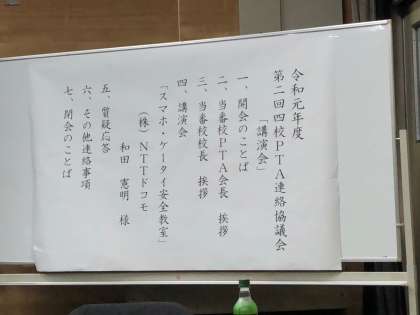 令和元年度
第二回四校PTA連絡協議会
「講演会」
一、開会のことば
二、当番校PTA会長 挨拶
三、当番校校長 挨拶
四、講演会
「スマホ・ケータイ安全教室」
(株)NTTドコモ
和田 憲明 様
五、質疑応答
六、その他連絡事項
七、閉会のことば